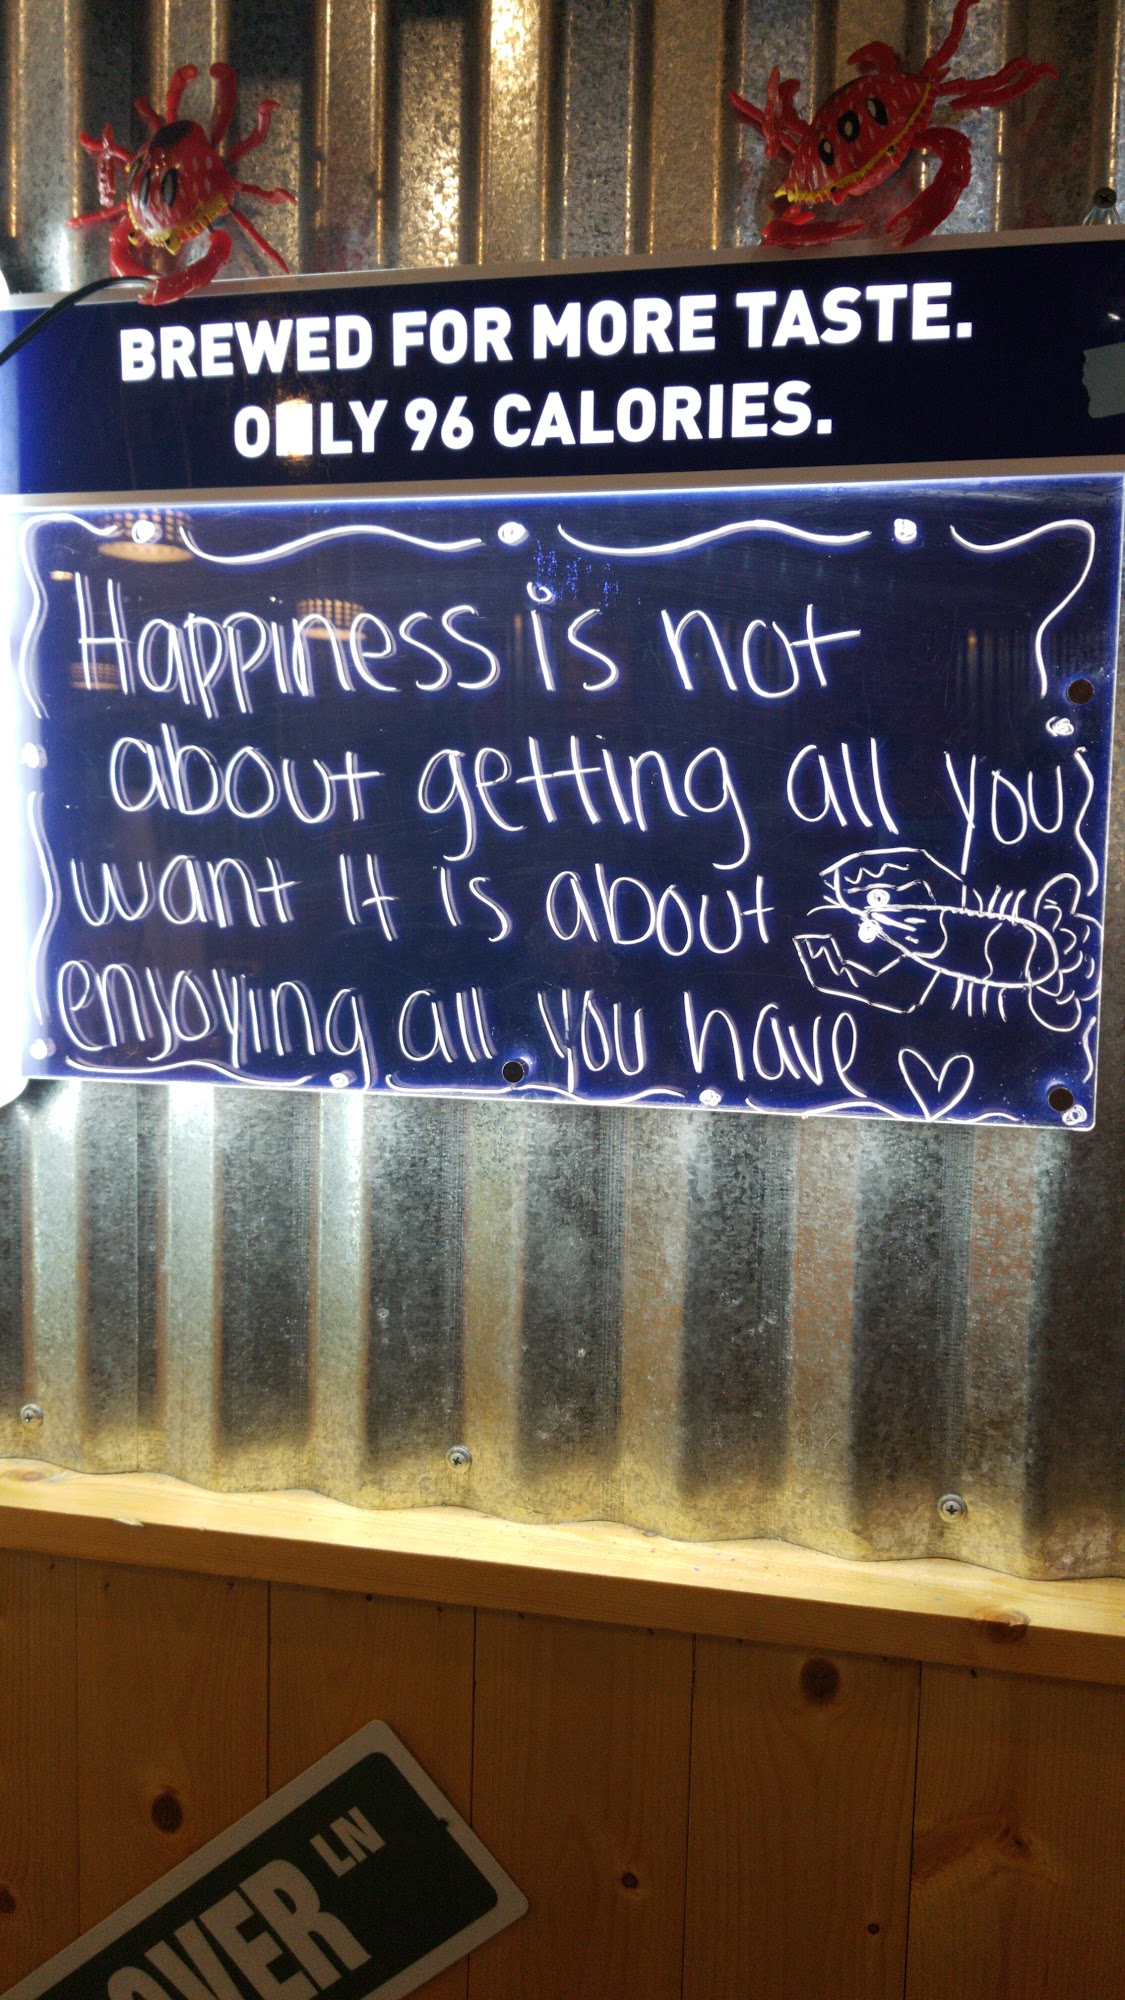 BREWED FOR MORE TASTE.
ONLY 96 CALORIES.
Happiness is not
about getting all you
want It is about
enjoying all you have
OVER LN